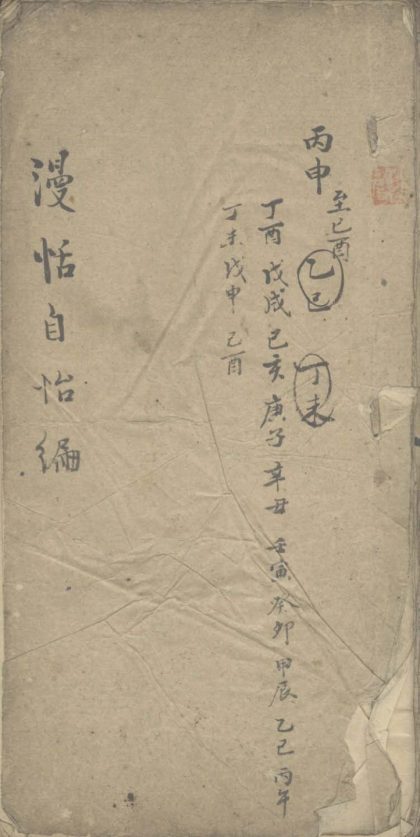 丙申至己酉
乙巳
丁未
丁酉 戊戌 己亥 庚子 辛丑 壬寅 癸卯 甲辰 乙巳 丙午
丁未 戊申 己酉
漫恬自怡編